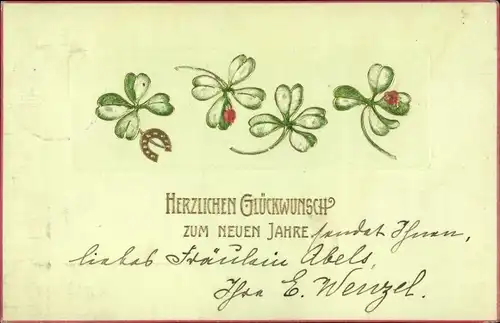 HERZLICHEN GLÜCKWUNSCH
ZUM NEUEN JAHRE sendet Ihnen,
liebes Fräulein Abels,
Ihre E. Wenzel.